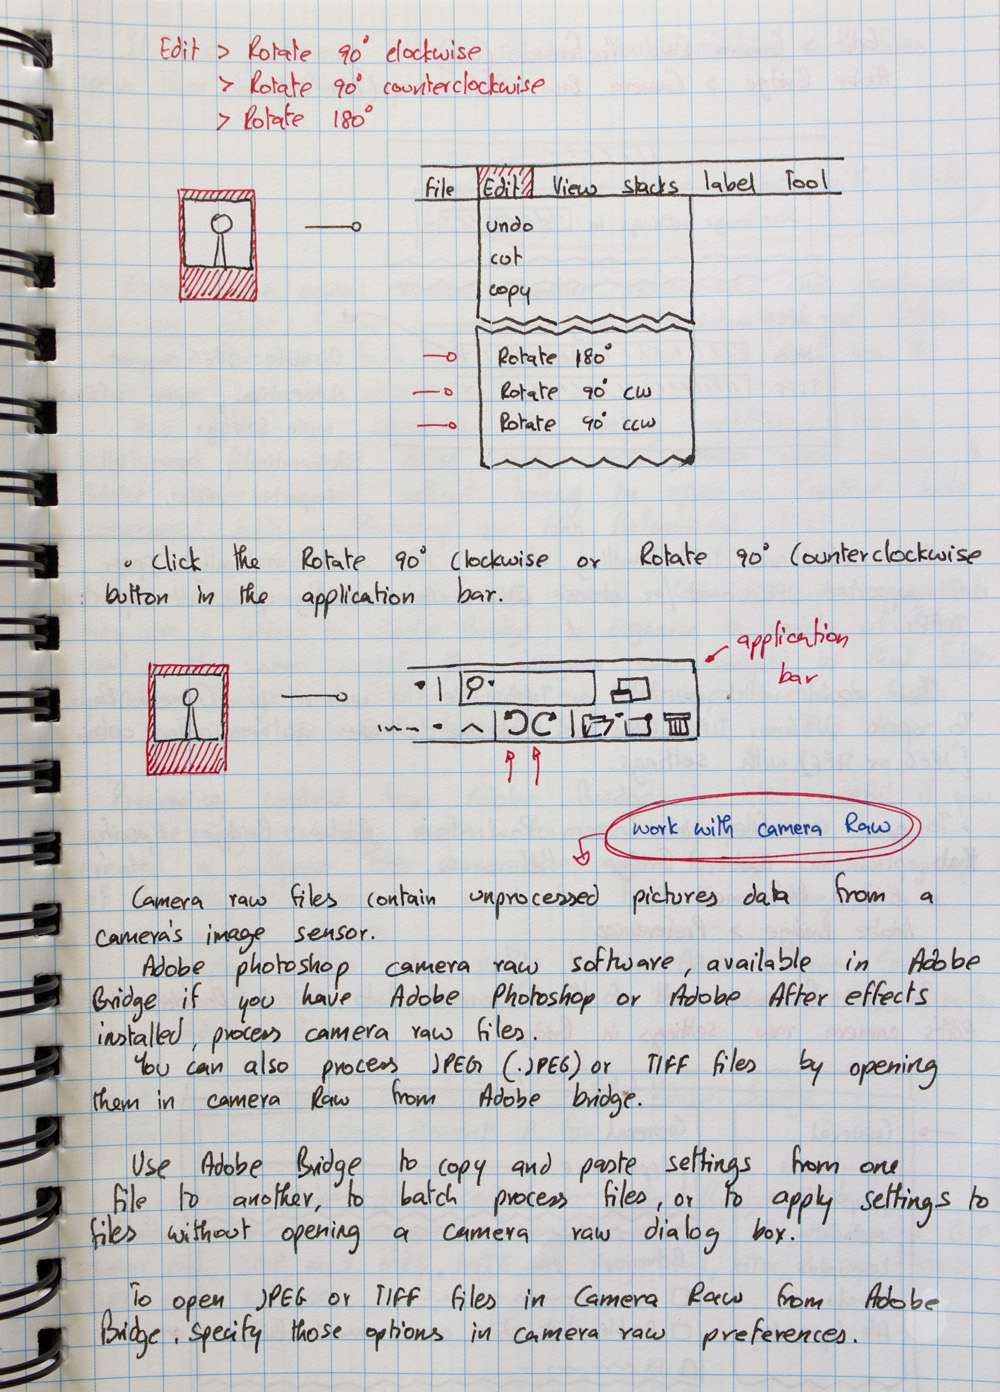 Edit > Rotate 90° clockwise
> Rotate 90° counterclockwise
> Rotate 180°
File Edit View stacks label Tool
undo
cut
copy
Rotate 180°
Rotate 90° cw
Rotate 90° ccw
• Click the Rotate 90° Clockwise or Rotate 90° Counterclockwise
button in the application bar.
application
bar
work with camera Raw
Camera raw files contain unprocessed pictures data from a
camera's image sensor.
Adobe photoshop camera raw software, available in Adobe
Bridge if you have Adobe Photoshop or Adobe After effects
installed, process camera raw files.
You can also process JPEG (.JPEG) or TIFF files by opening
them in camera Raw from Adobe bridge.
Use Adobe Bridge to copy and paste settings from one
file to another, to batch process files, or to apply settings to
files without opening a camera raw dialog box.
To open JPEG or TIFF files in Camera Raw from Adobe
Bridge, specify those options in camera raw preferences.